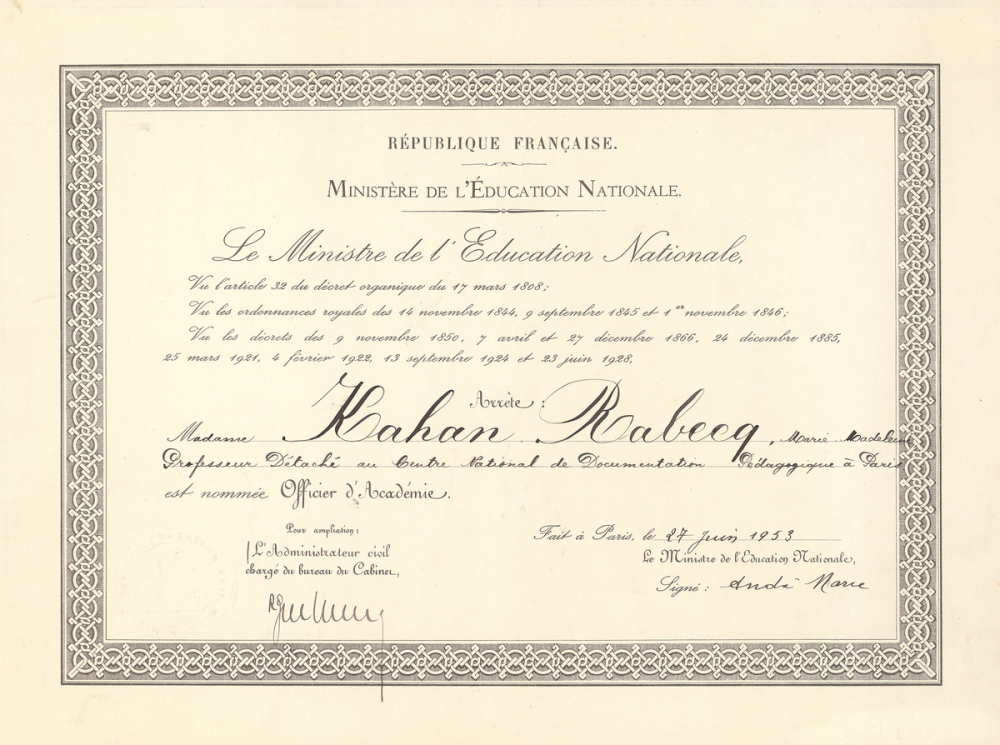 RÉPUBLIQUE FRANÇAISE.
MINISTÈRE DE L'ÉDUCATION NATIONALE.
Le Ministre de l'Education Nationale,
Vu l'article 32 du décret organique du 17 mars 1808;
Vu les ordonnances royales des 14 novembre 1844, 9 septembre 1845 et 1er novembre 1846;
Vu les décrets des 9 novembre 1850, 7 avril et 27 décembre 1866, 24 décembre 1885,
25 mars 1921, 4 février 1922, 13 septembre 1924 et 23 juin 1928,
Arrête :
Madame Kahan Rabecq, Marie Madeleine
Professeur Détaché au Centre National de Documentation Pédagogique à Paris
est nommée Officier d'Académie.
Pour ampliation:
L'Administrateur civil
chargé du bureau du Cabinet,
Fait à Paris, le 27 Juin 1953
Le Ministre de l'Education Nationale,
Signé: André Marie